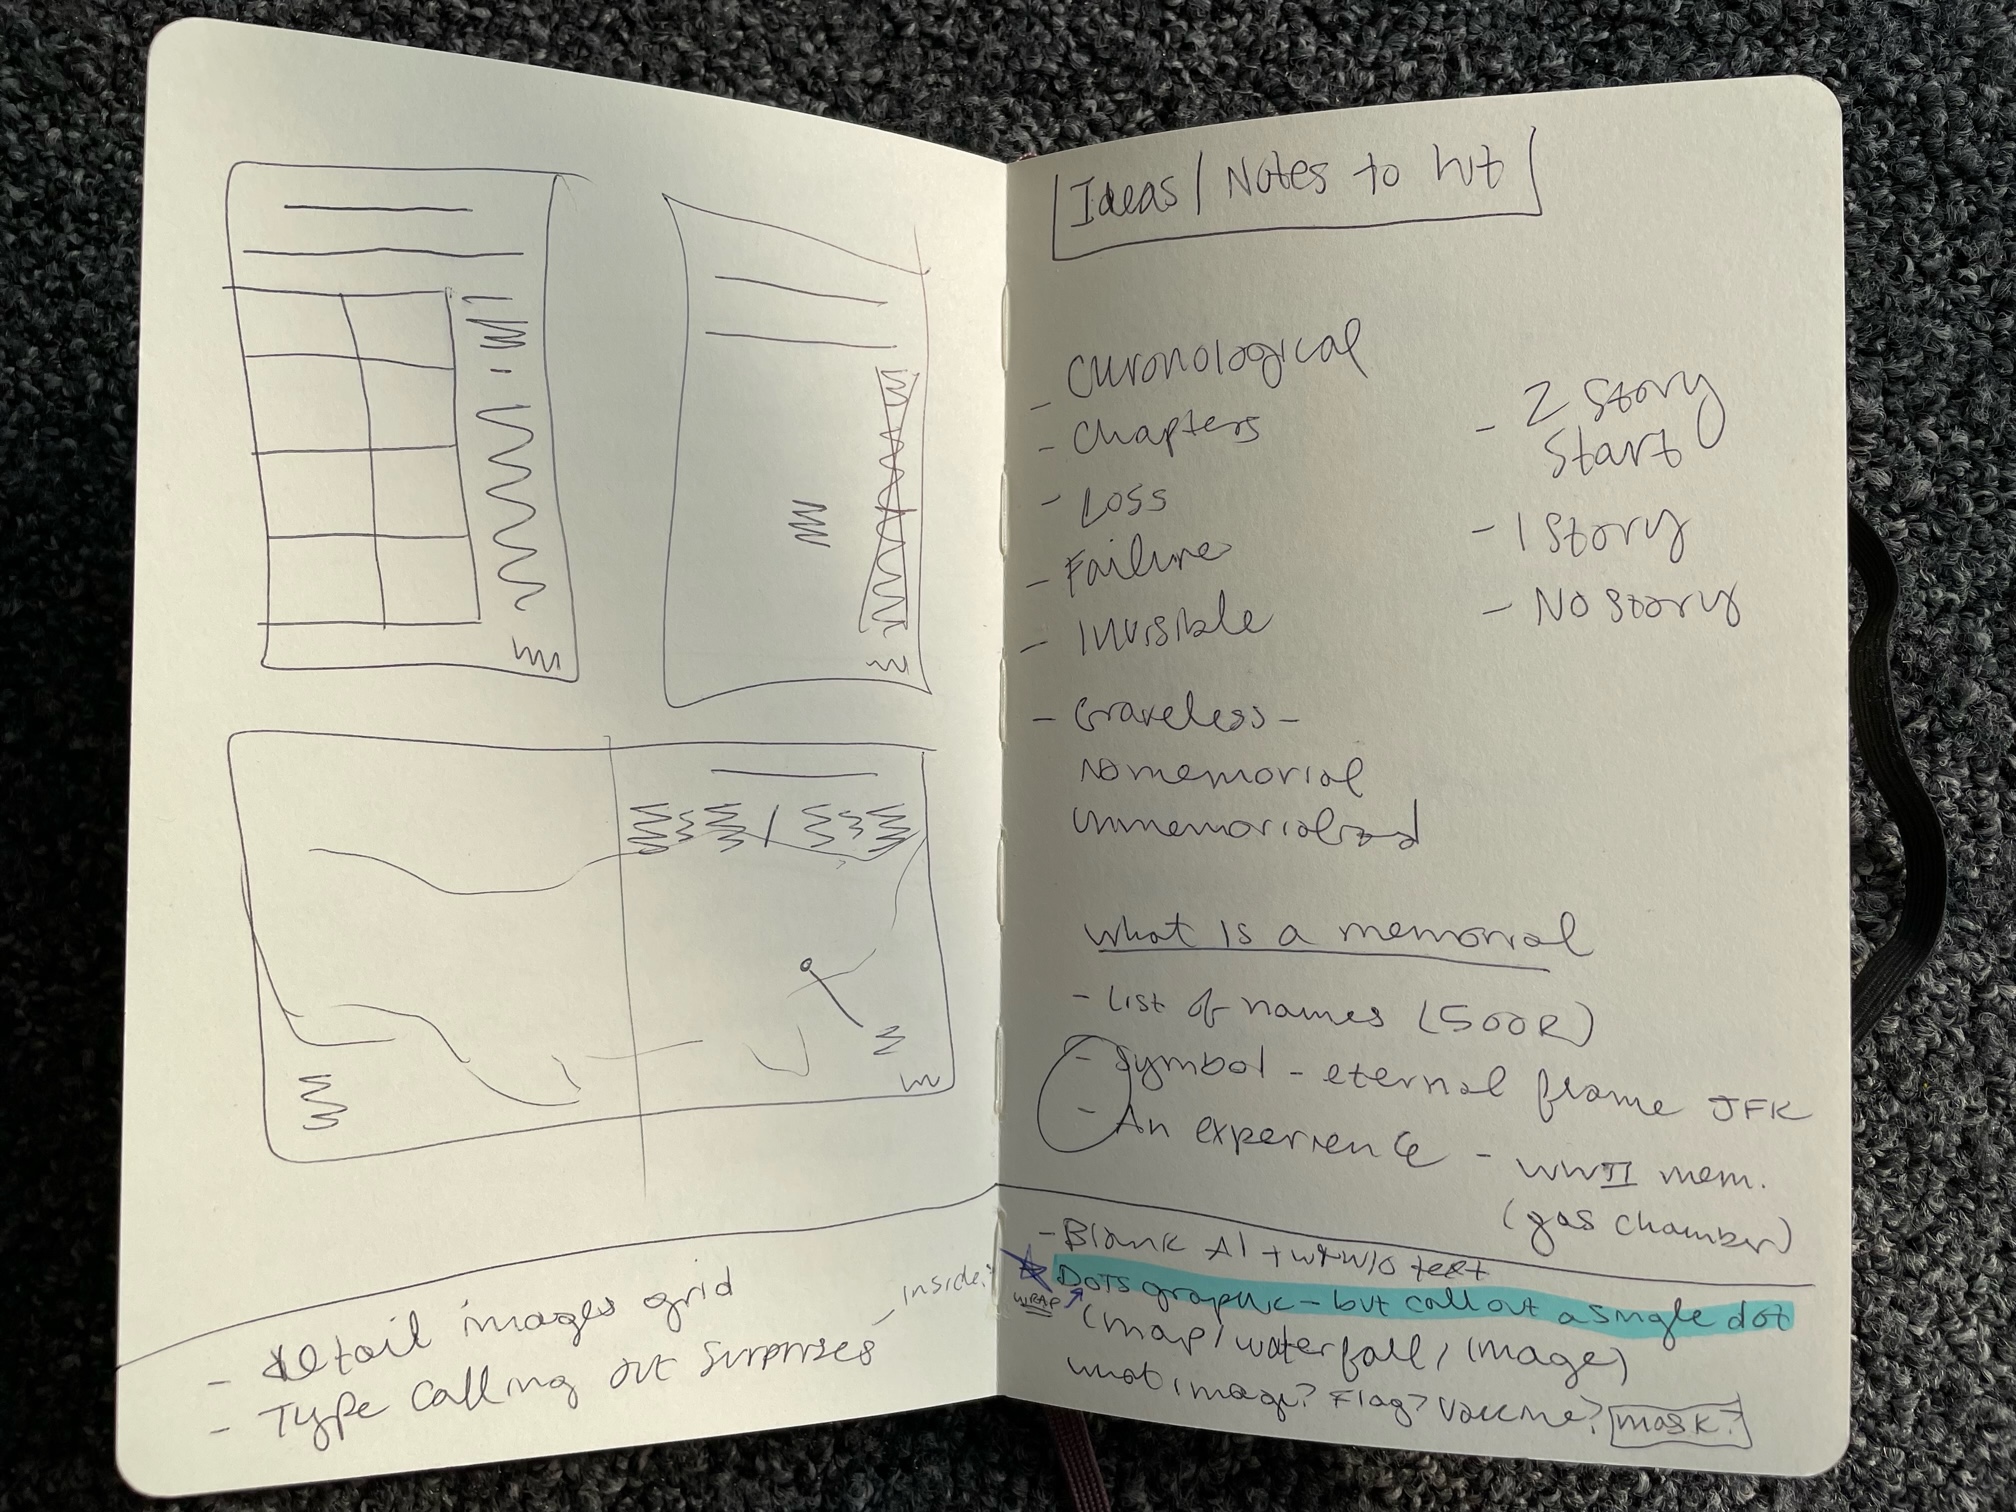 - Detail images grid
- Type calling out surprises - inside?
Ideas / Notes to hit
- Chronological
- Chapters
- Loss
- Failure
- Invisible
- Graveless -
No memorial
Unmemorialized
- 2 story
start
- 1 story
- No story
What is a memorial
- List of names (500K)
- Symbol - eternal flame JFK
- An experience - WWII mem.
(gas chamber)
- Blank A1 + w+w/o text
WRAP
Dots graphic - but call out a single dot
(map / waterfall / image)
What image? Flag? Vaccine? mask?